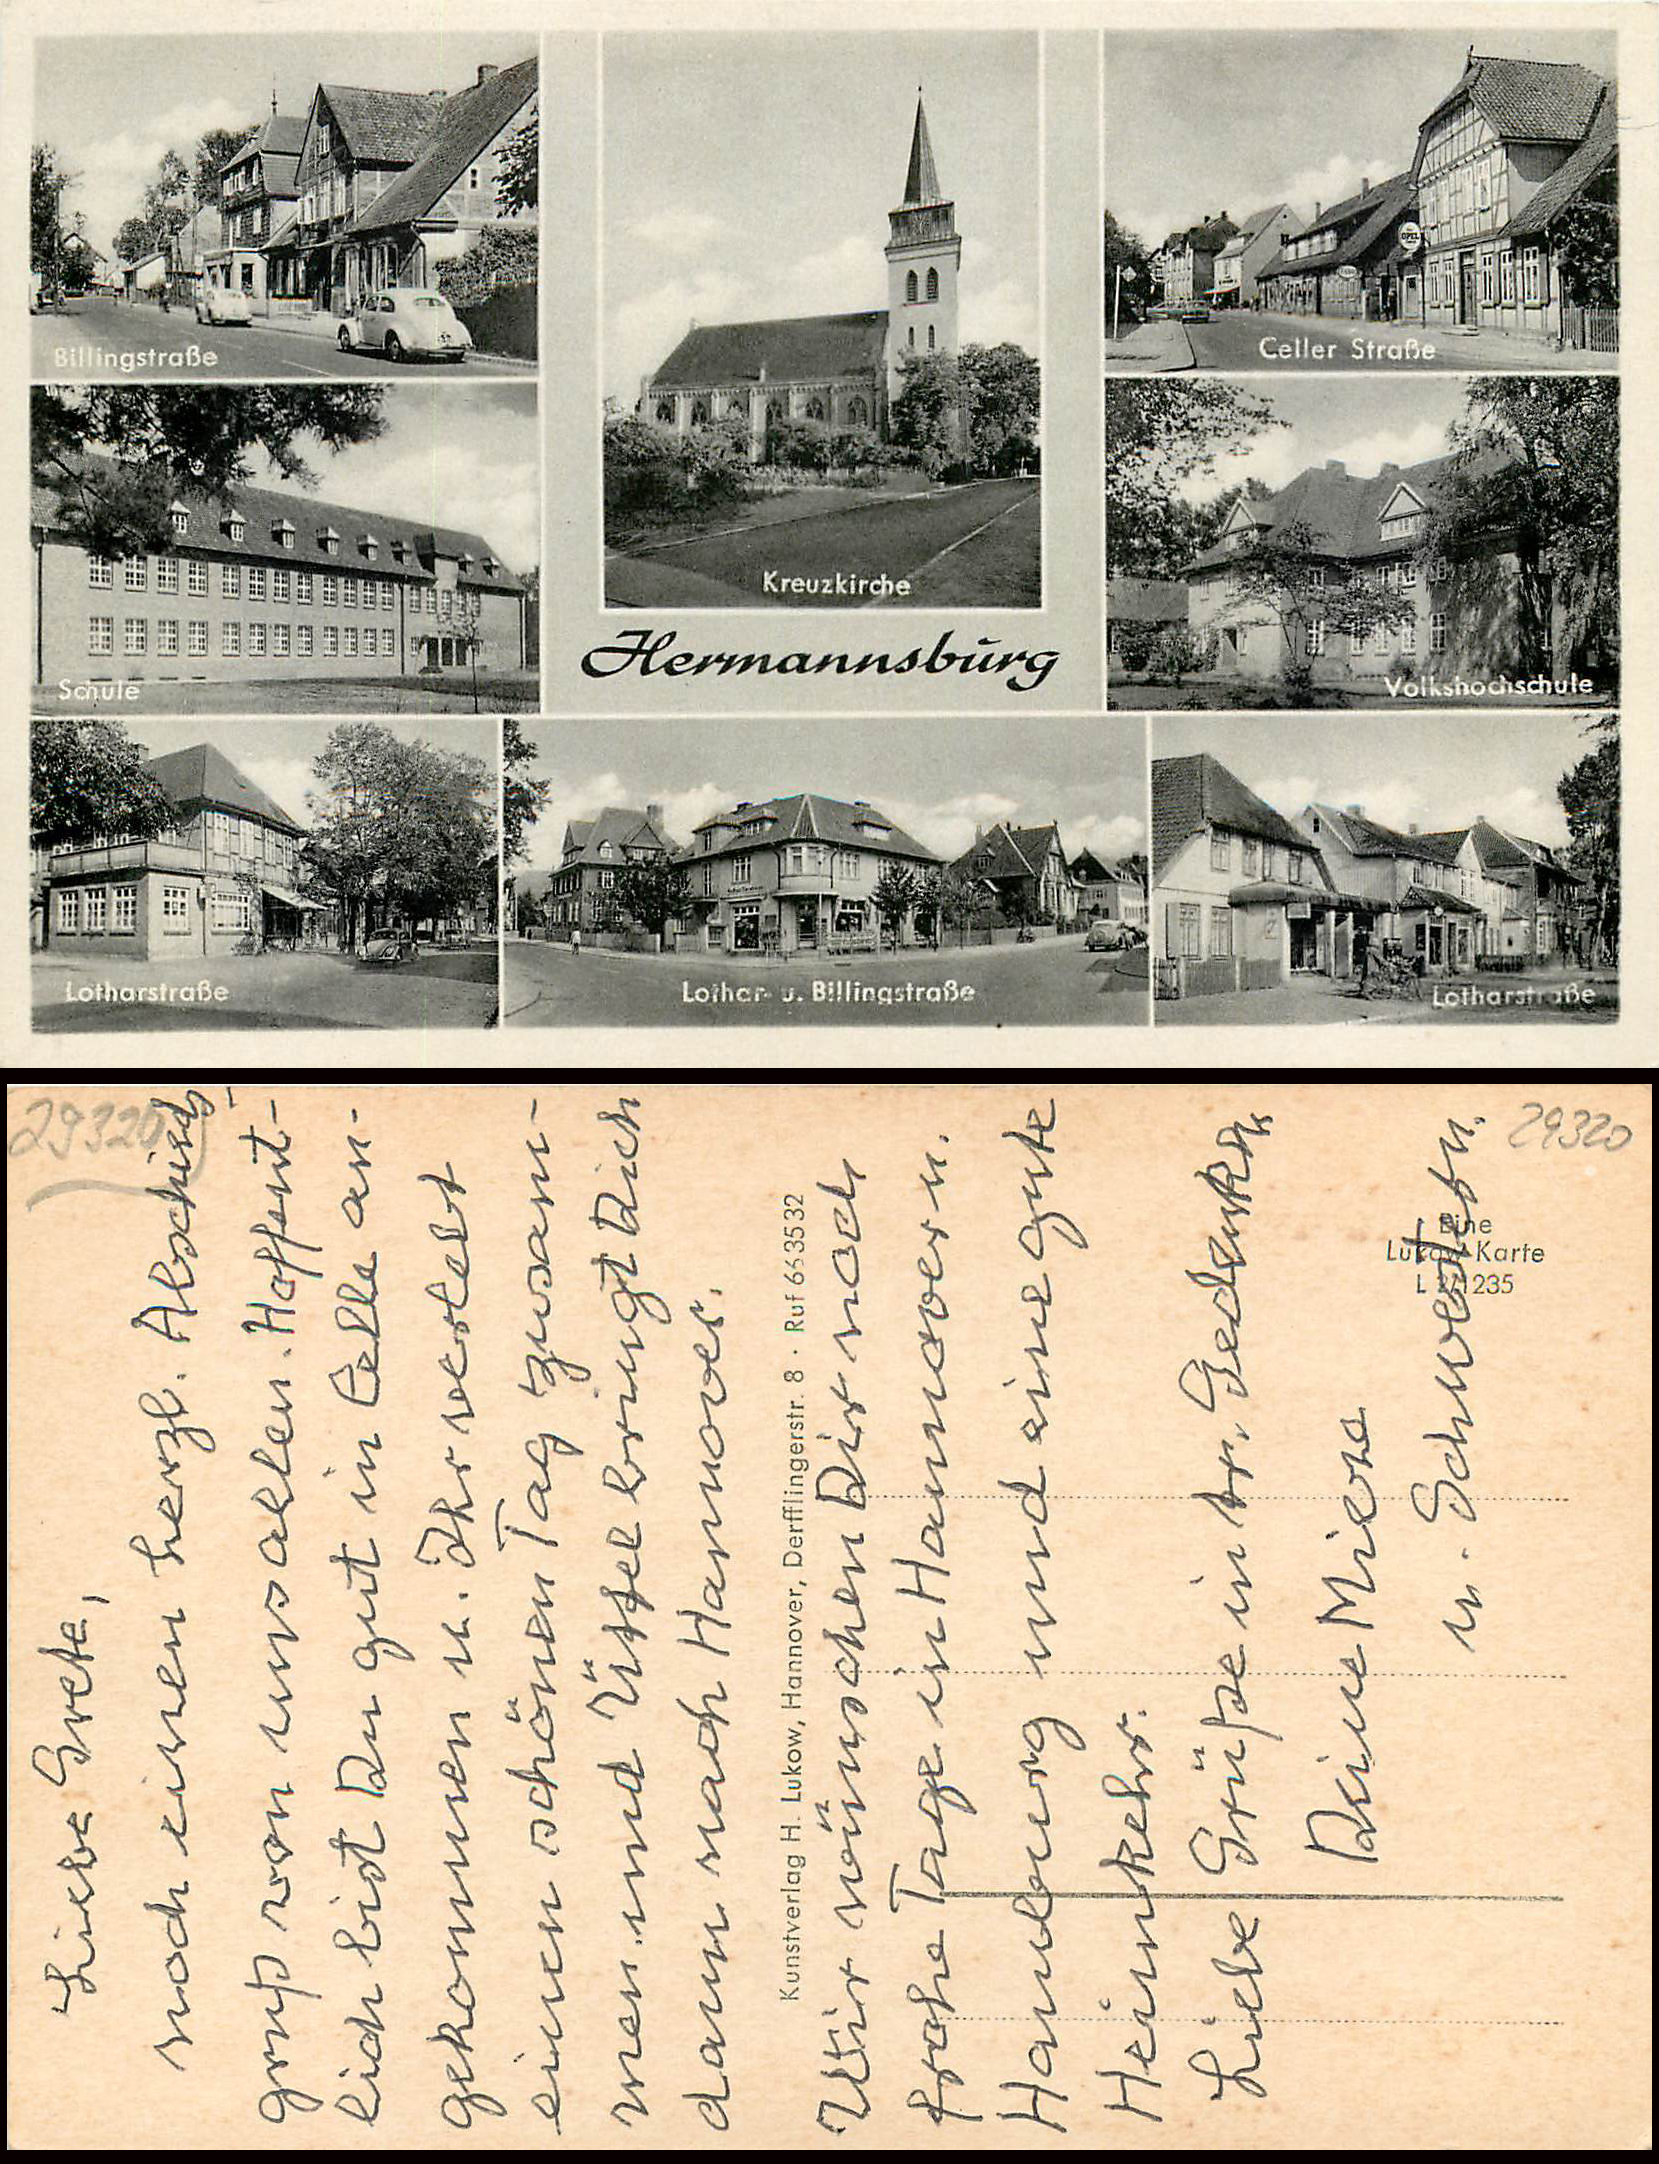 Billingstraße
Kreuzkirche
OPEL
Celler Straße
Schule
Hermannsburg
Volkshochschule
Lotharstraße
Lothar- u. Billingstraße
Lotharstraße
29320
29320
Liebe Grete,
noch einen herzl. Abschieds-
gruß von uns allen. Hoffent-
lich bist Du gut in Celle an-
gekommen u. Ihr verlebt
einen schönen Tag zusam-
men und bringt Dich
dann nach Hannover.
Kunstverlag H. Lukow, Hannover, Derfflingerstr. 8 · Ruf 663532
Wir wünschen Dir noch
frohe Tage in Hannover u.
Hamburg und eine gute
Heimkehr.
Liebe Grüße in tr. Gedenken
Deine Mieze
u. Schwestern.
Eine
Lukow-Karte
L 2/1235